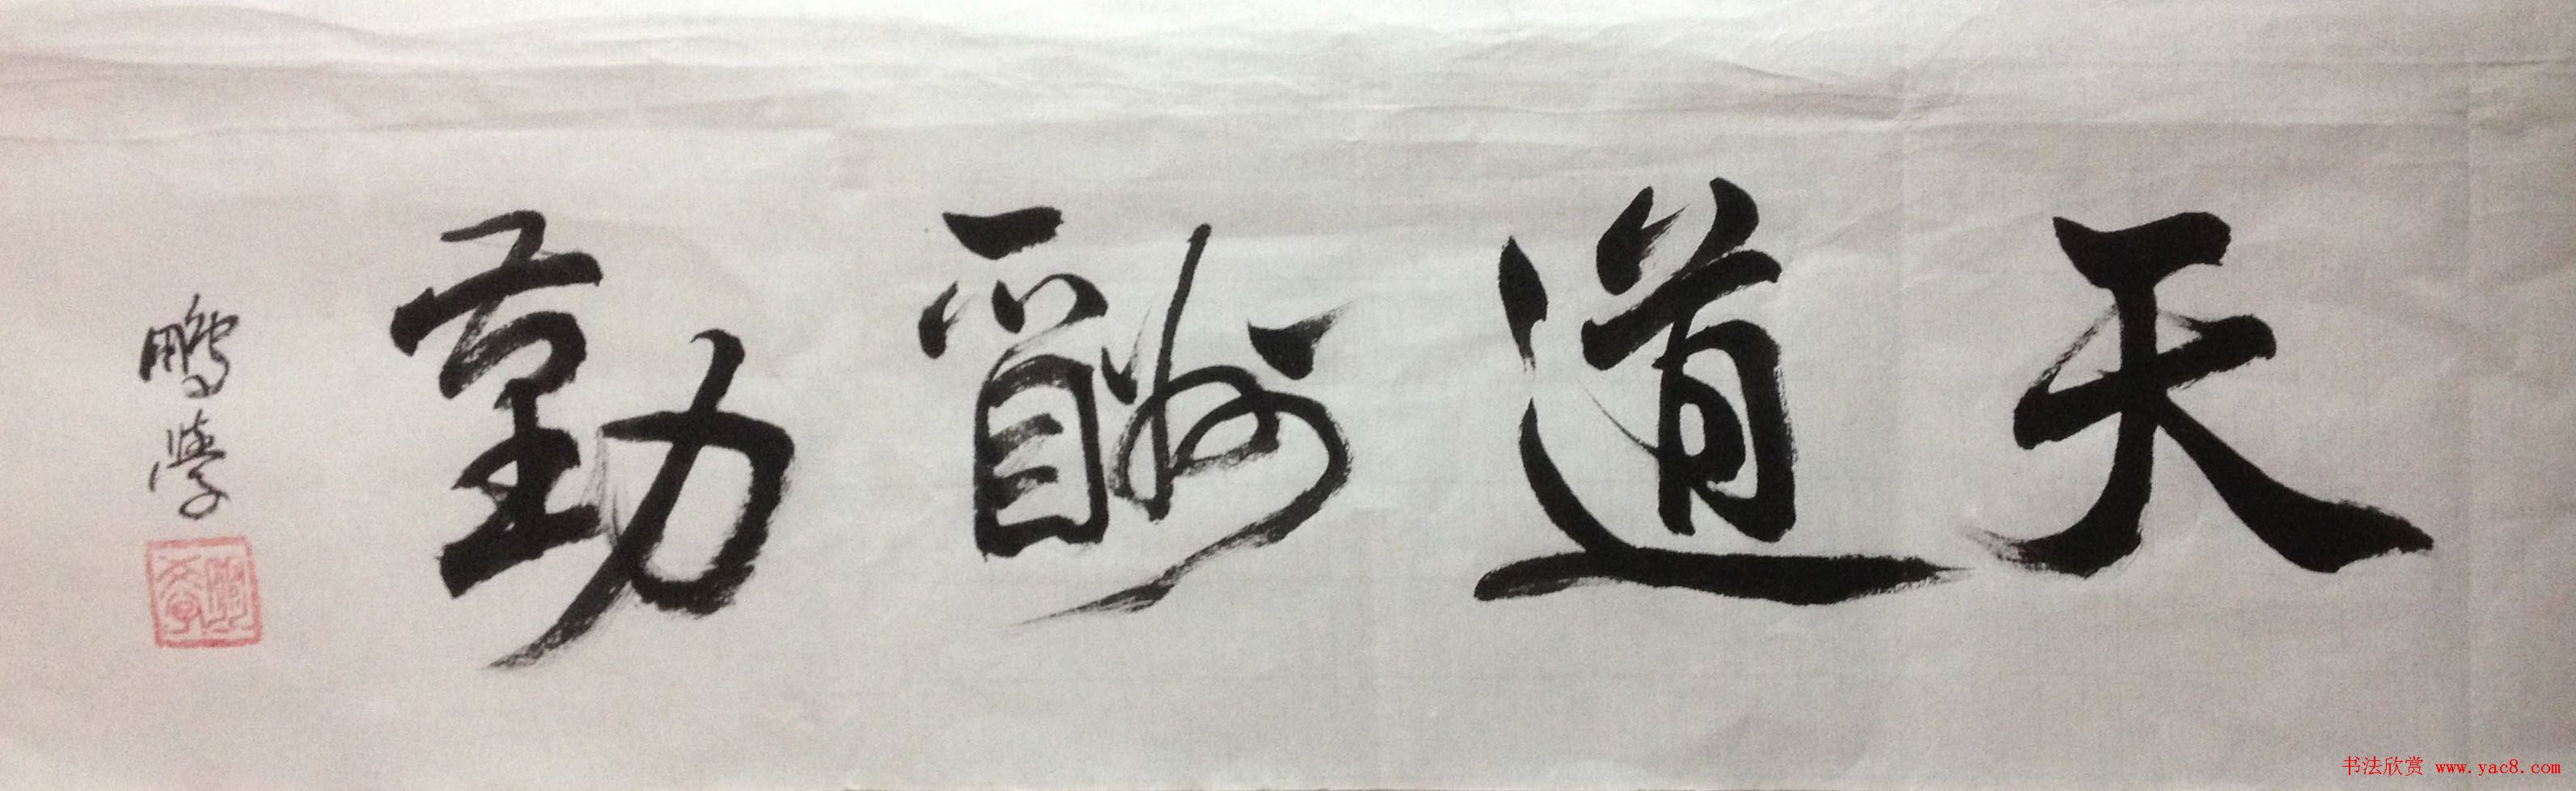 天道酬勤
鹏学
书法欣赏 www.yac8.com